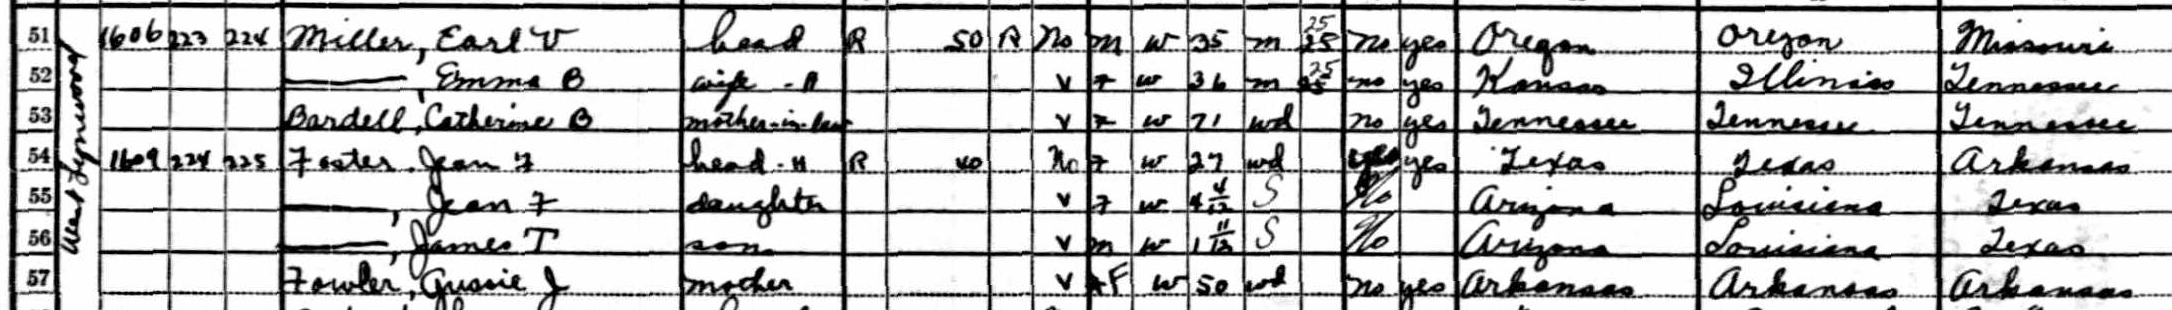 51 1606 223 224 Miller, Earl V head R 50 R No m w 35 m 25 25 no yes Oregon Oregon Missouri
52 ———, Emma B wife - H v F w 36 m 25 25 no yes Kansas Illinois Tennessee
53 Bardell, Catherine B mother-in-law v F w 71 wd no yes Tennessee Tennessee Tennessee
54 1609 224 225 Foster, Jean F head - H R 40 No F w 27 wd yes yes Texas Texas Arkansas
55 ———, Jean F daughter v F w 4 4/12 S No Arizona Louisiana Texas
56 ———, James T son v m w 1 11/12 S No Arizona Louisiana Texas
57 Fowler, Gussie J mother v F w 50 wd no yes Arkansas Arkansas Arkansas
West Lynwood